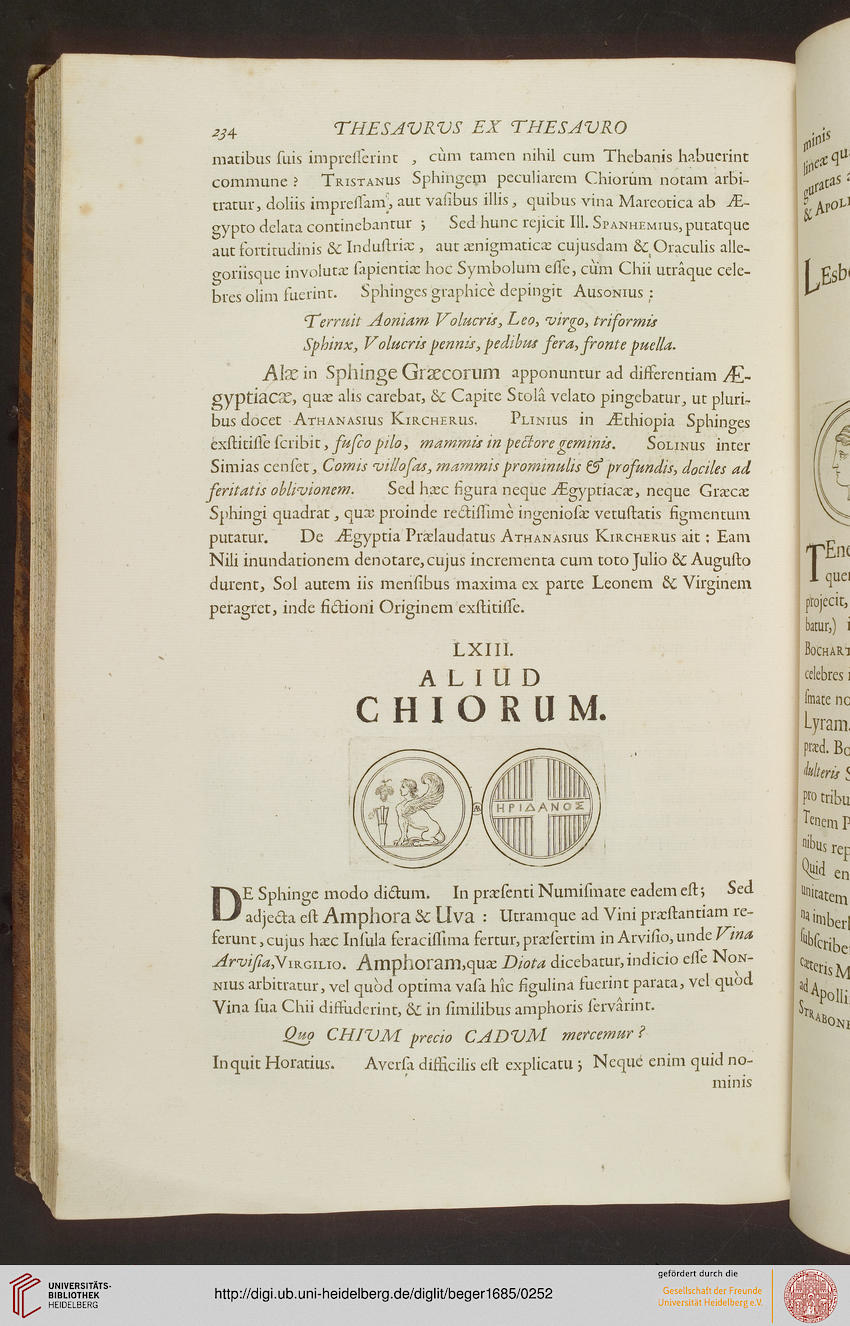 234 THESAVRVS EX THESAVRO
matibus ſuis impreſſerint , cùm tamen nihil cum Thebanis habuerint
commune ? TRISTANUS Sphingem peculiarem Chiorûm notam arbi-
tratur, doliis impreſſam, aut vaſibus illis, quibus vina Mareotica ab Æ-
gypto delata continebantur ; Sed hunc rejicit Ill. SPANHEMIUS, putatque
aut fortitudinis & Induſtriæ, aut ænigmaticæ cujusdam & Oraculis alle-
goriisque involutæ ſapientiæ hoc Symbolum eſſe, cùm Chii utrâque cele-
bres olim fuerint. Sphinges graphicè depingit AUSONIUS :
Terruit Aoniam Volucris, Leo, virgo, triformis
Sphinx, Volucris pennis, pedibus fera, fronte puella.
Alæ in Sphinge Græcorum apponuntur ad differentiam Æ-
gyptiacæ, quæ alis carebat, & Capite Stolâ velato pingebatur, ut pluri-
bus docet ATHANASIUS KIRCHERUS. PLINIUS in Æthiopia Sphinges
exſtitiſſe ſcribit, fuſco pilo, mammis in pectore geminis. SOLINUS inter
Simias cenſet, Comis villoſas, mammis prominulis & profundis, dociles ad
feritatis oblivionem. Sed hæc figura neque Ægyptiacæ, neque Græcæ
Sphingi quadrat, quæ proinde rectiſſimè ingenioſæ vetuſtatis figmentum
putatur. De Ægyptia Prælaudatus ATHANASIUS KIRCHERUS ait : Eam
Nili inundationem denotare, cujus incrementa cum toto Julio & Auguſto
durent, Sol autem iis menſibus maxima ex parte Leonem & Virginem
peragret, inde fictioni Originem exſtitiſſe.
LXIII.
ALIUD
CHIORUM.
ΗΡΙΔΑΝΟΣ
DE Sphinge modo dictum. In præſenti Numiſmate eadem eſt; Sed
adjecta eſt Amphora & Uva : Utramque ad Vini præſtantiam re-
ferunt, cujus hæc Inſula feraciſſima fertur, præſertim in Arviſio, unde Vina
Arviſia, VIRGILIO. Amphoram, quæ Diota dicebatur, indicio eſſe NON-
NIUS arbitratur, vel quòd optima vaſa hîc figulina fuerint parata, vel quòd
Vina ſua Chii diffuderint, & in ſimilibus amphoris ſervârint.
Quo CHIVM precio CADVM mercemur ?
Inquit Horatius. Averſa difficilis eſt explicatu ; Neque enim quid no-
minis
minis
lineæ qu
guratas
& APOLL
LEsb
TEne
que
projecit,
batur,) i
BOCHART
celebres
ſmate no
Lyram.
præd. Bo
dulteris S
pro tribu
Tenem P
nibus rep
Quid en
unitatem
na imber
ſubſcribe
cæteris M
ad Apolli
STRABONI
UNIVERSITÄTS-
BIBLIOTHEK
HEIDELBERG
http://digi.ub.uni-heidelberg.de/diglit/beger1685/0252
gefördert durch die
Gesellschaft der Freunde
Universität Heidelberg e.V.